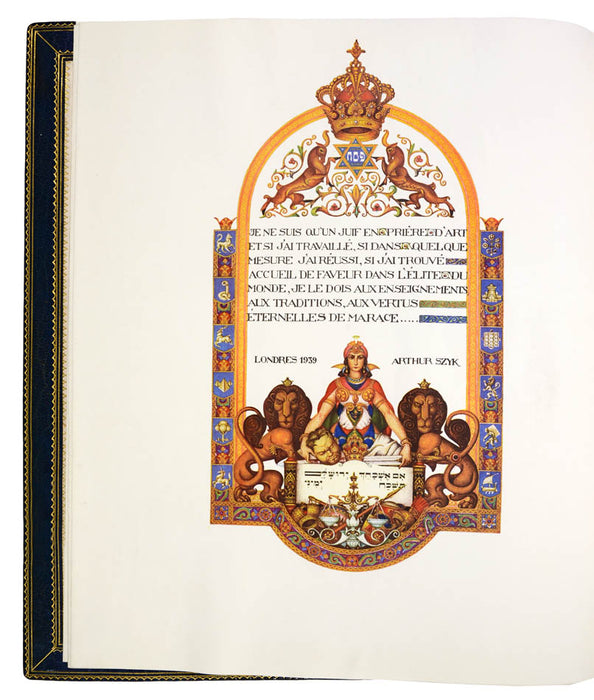 פסח
JE NE SUIS QU'UN JUIF EN PRIÈRE D'ART
ET SI J'AI TRAVAILLÉ, SI DANS QUELQUE
MESURE J'AI RÉUSSI, SI J'AI TROUVÉ
ACCUEIL DE FAVEUR DANS L'ÉLITE DU
MONDE, JE LE DOIS AUX ENSEIGNEMENTS
AUX TRADITIONS, AUX VERTUS
ÉTERNELLES DE MA RACE.....
LONDRES 1939 ARTHUR SZYK
אם אשכחך ירושלים
תשכח ימיני